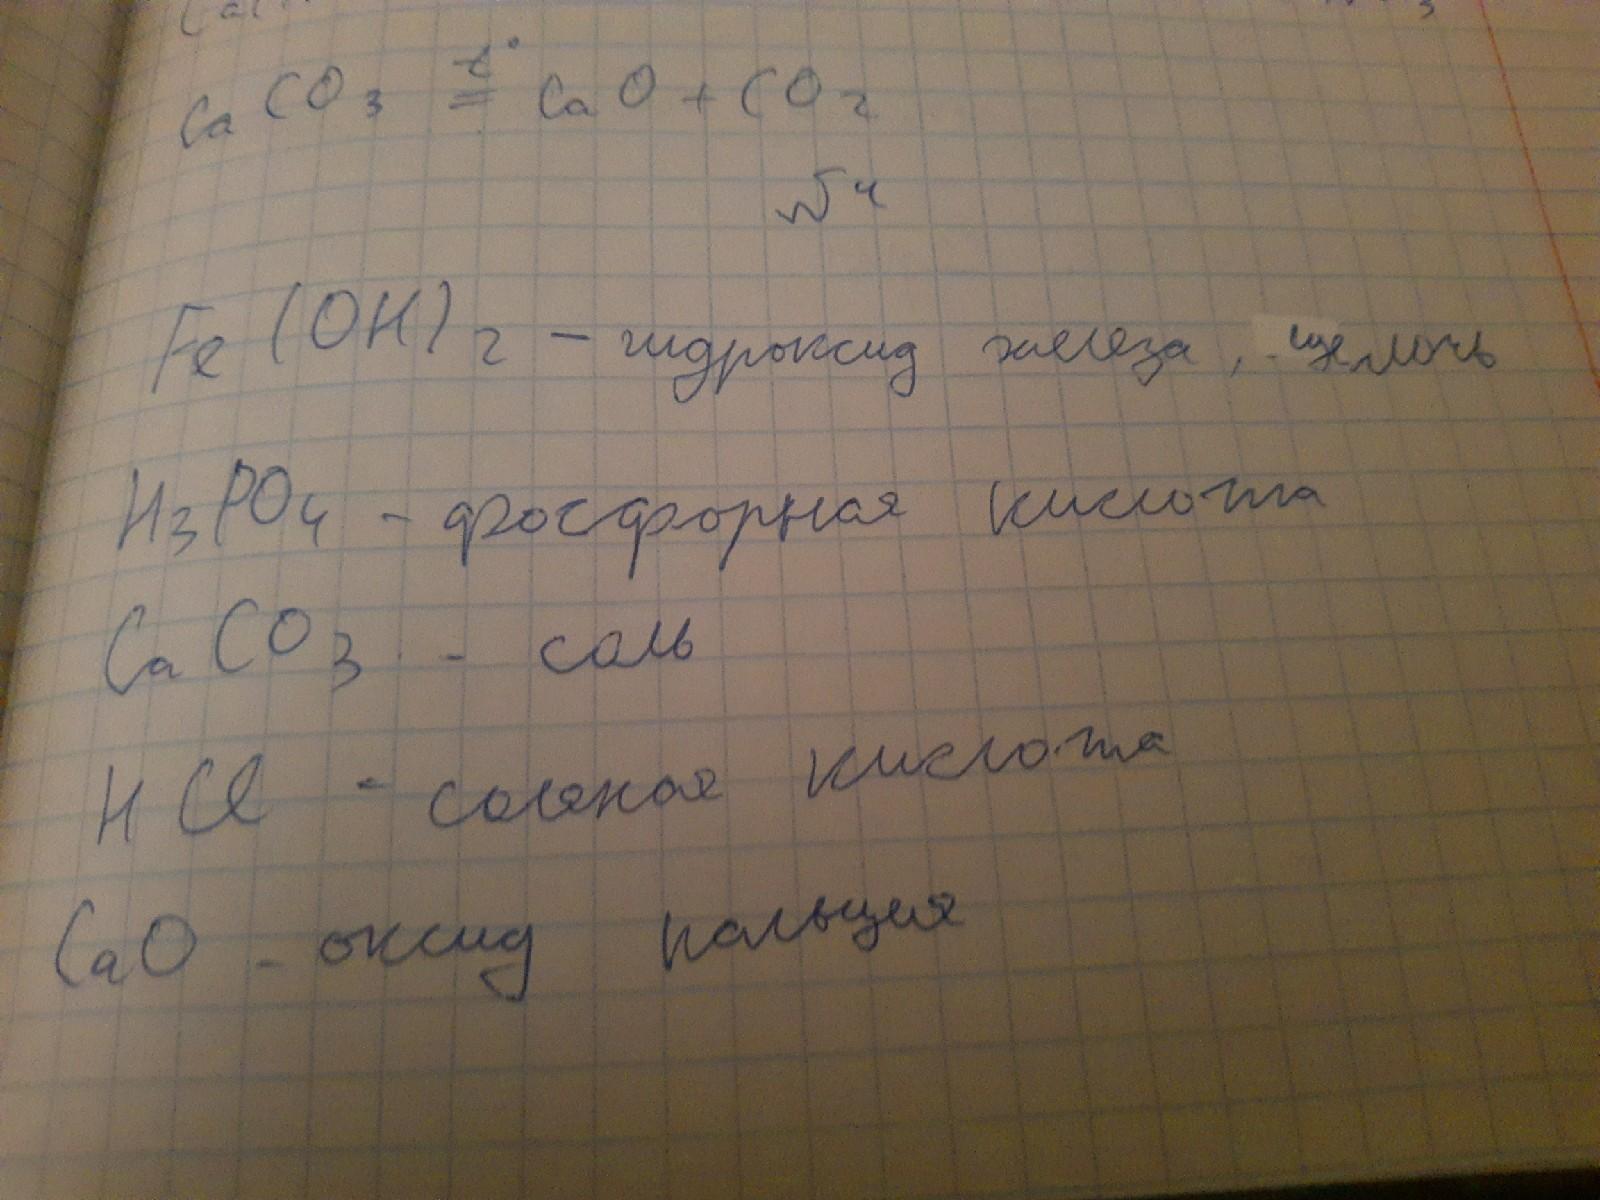 CaCO3 t°= CaO + CO2
№4
Fe(OH)2 – гидроксид железа, щелочь
H3PO4 - фосфорная кислота
CaCO3 - соль
HCl - соляная кислота
CaO - оксид кальция